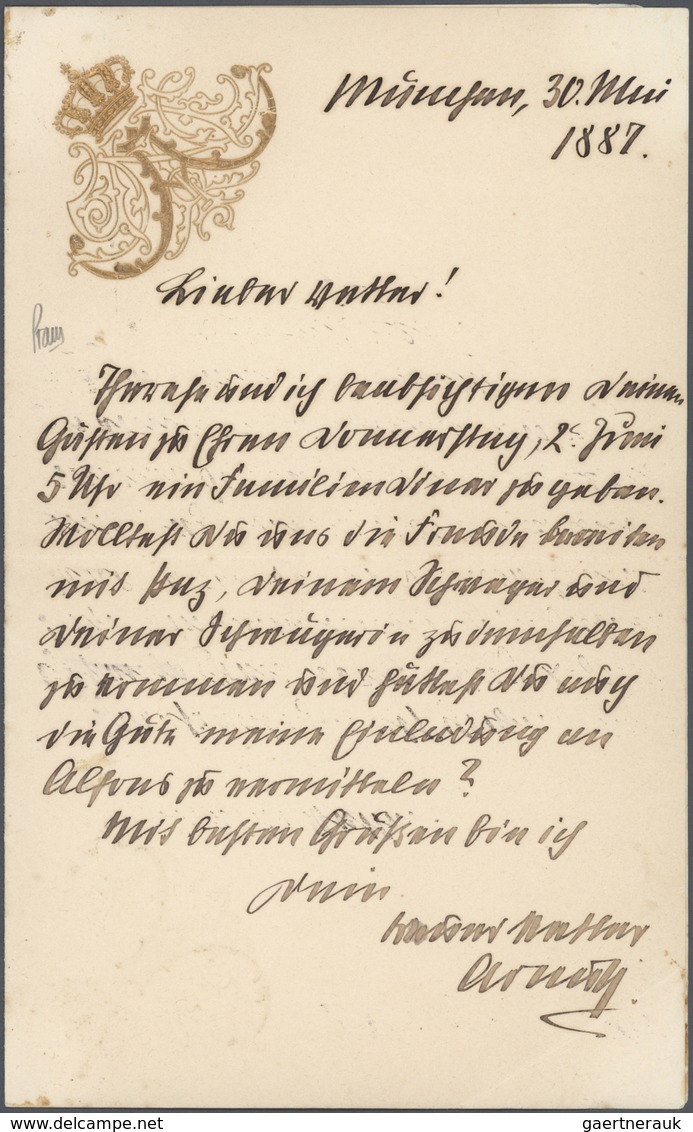 München, 30. Mai
1887.
Lieber Vetter!
Therese und ich beabsichtigen Deinen
Gästen zu Ehren Donnerstag, 2t Juni
5 Uhr ein Familiendiner zu geben.
Wolltest Du uns die Freude bereiten
mit Paz, Deinem Schwager und
Deiner Schwägerin zu demselben
zu kommen und hättest Du auch
die Güte meine Einladung an
Alfons zu vermitteln?
Mit besten Grüßen bin ich
Dein
treuer Vetter
Arnulf.
gaertnerauk